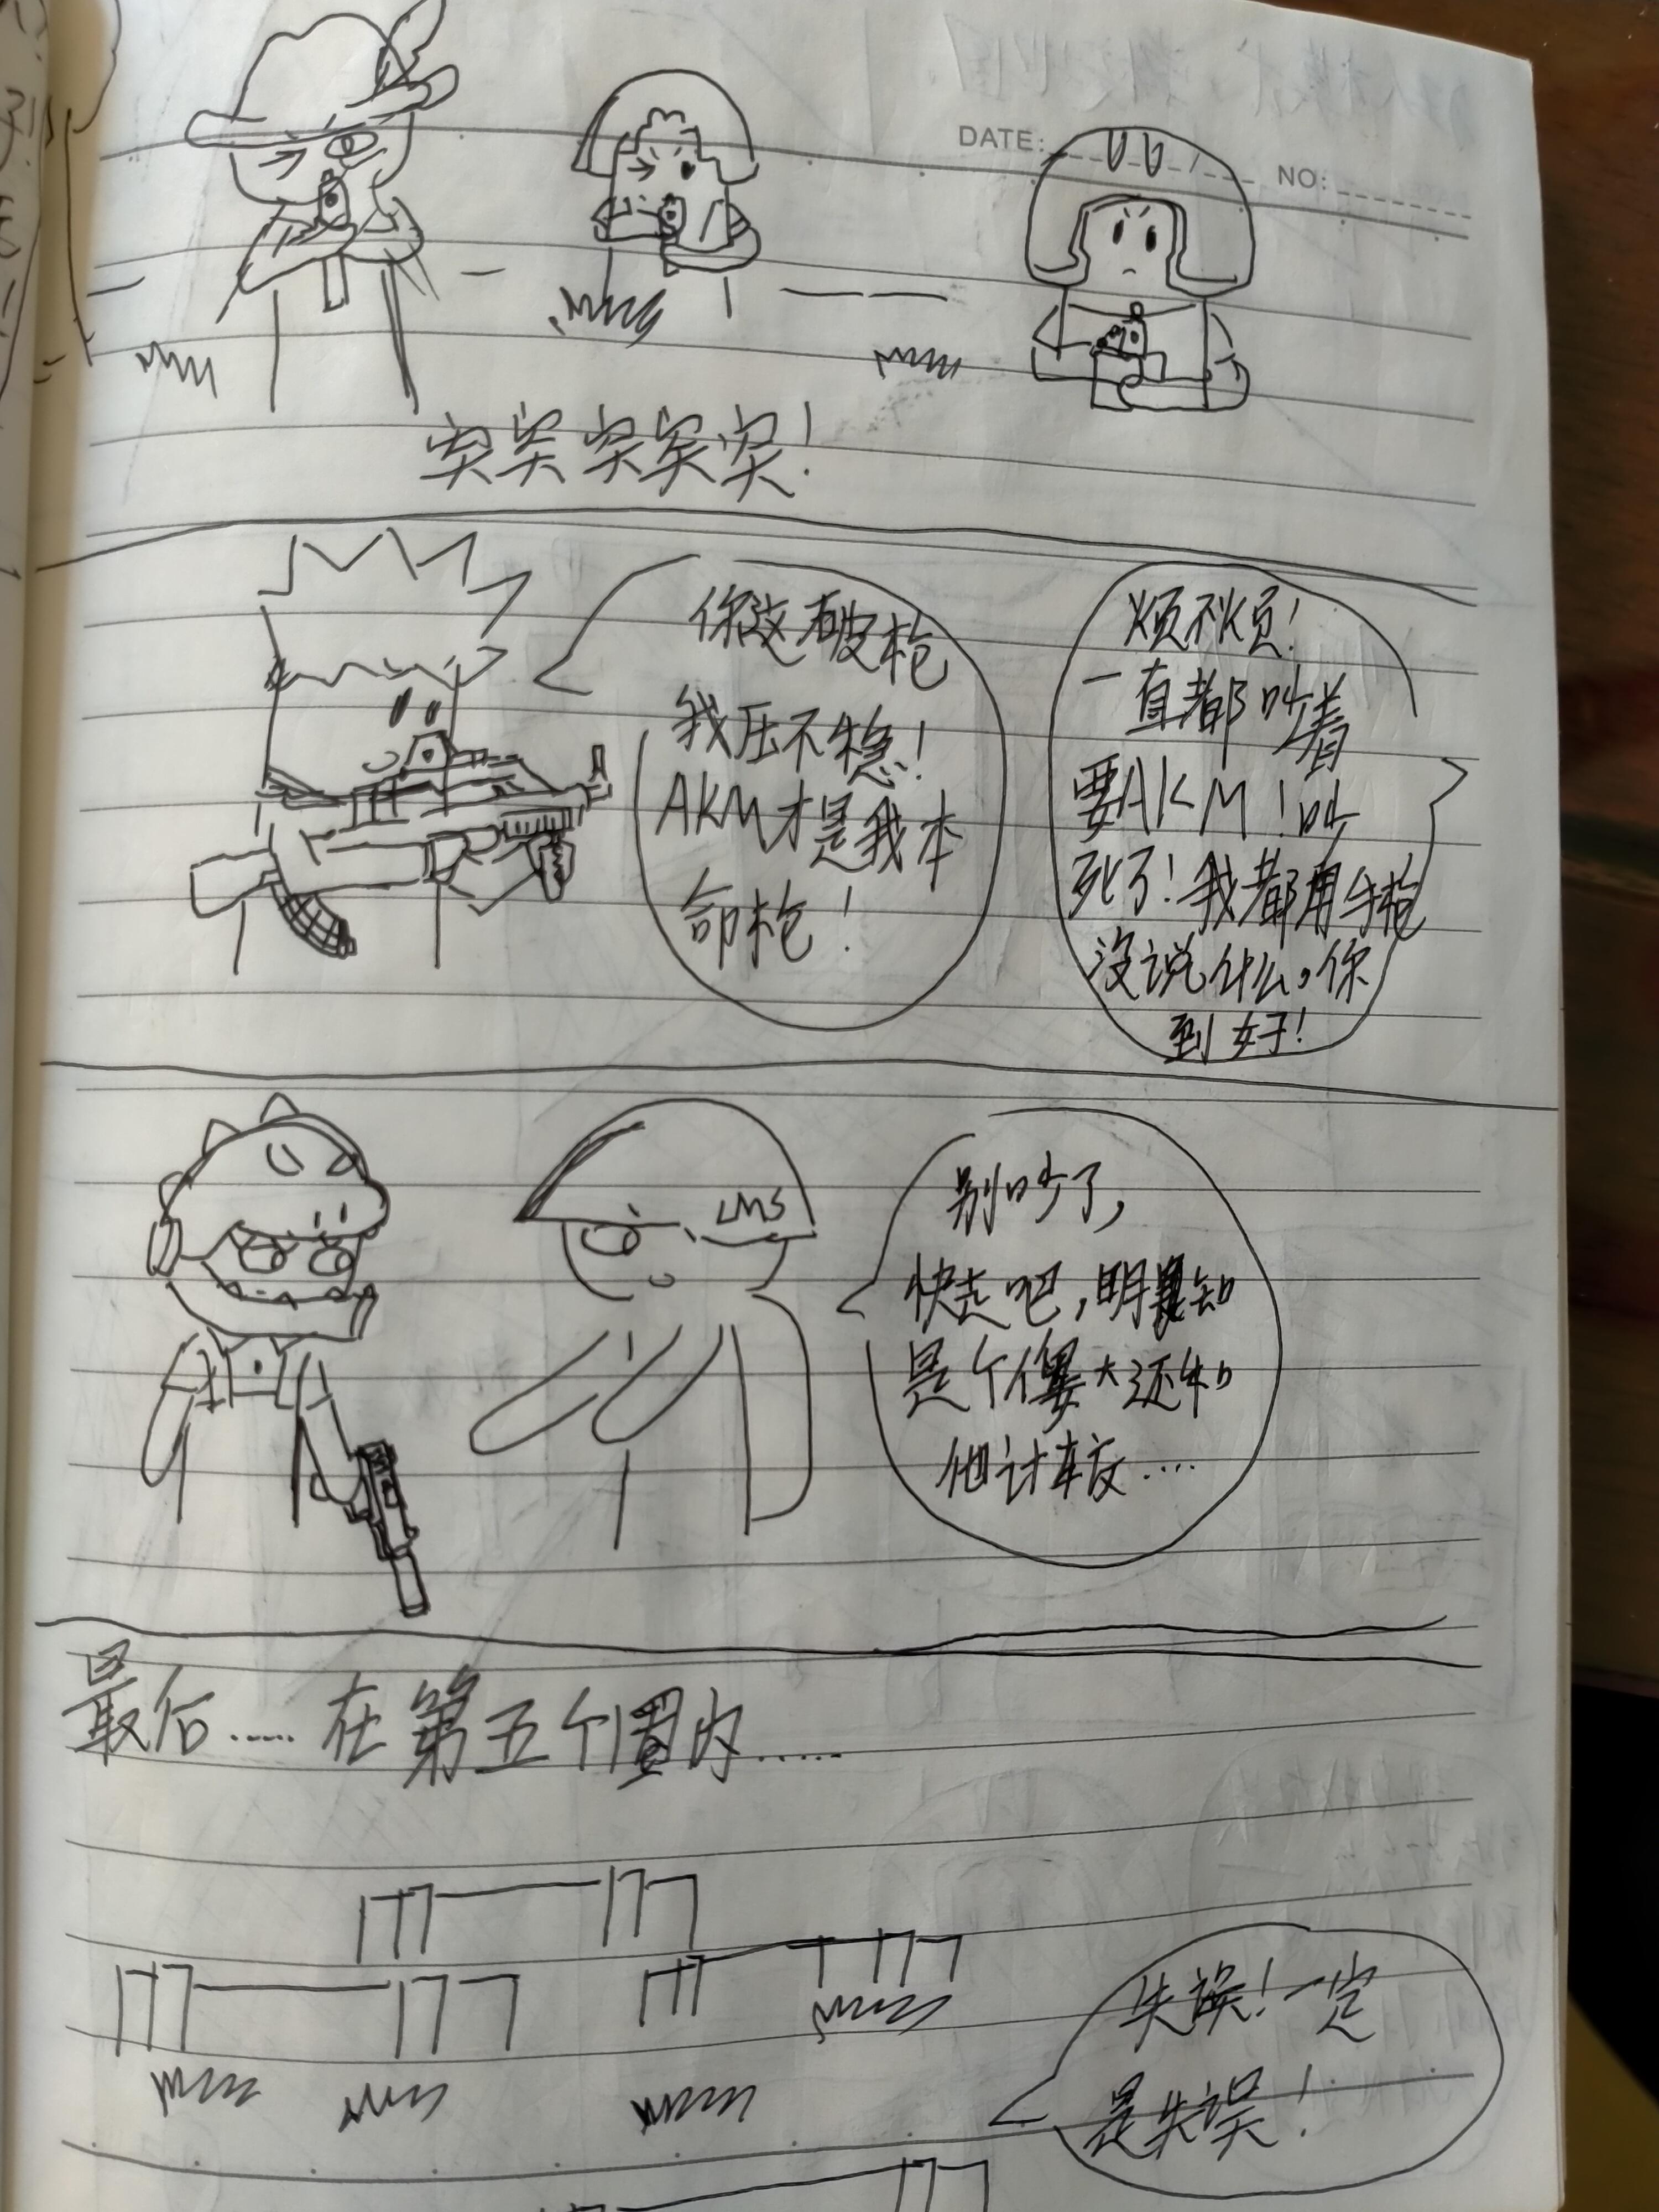 DATE: / NO:
突突突突突!
你这破枪
我压不稳!
AKM才是我本
命枪!
烦不烦!
一直都叫着
要AKM!叫
死了!我都用手枪
没说什么,你
到好!
LMS
别吵了,
快走吧,明知
是个傻大还和
他计较....
最后......在第五个圈内......
失误!一定
是失误!